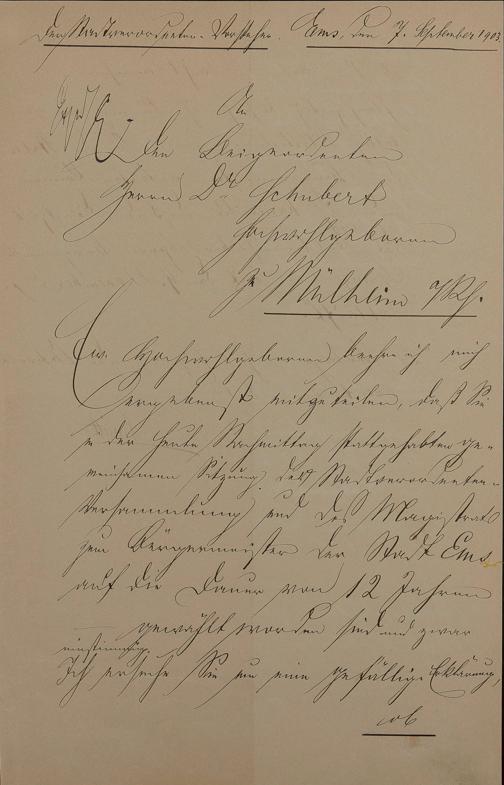 Der Stadtverordneten-Vorsteher. Ems, den 7. September 1903.
An
den Beigeordneten
Herrn Dr. Schubert
Hochwohlgeboren
zu Mülheim a/Rh.
Ew. Hochwohlgeboren beehre ich mich
ergebenst mitzuteilen, daß Sie
in der heute Nachmittag stattgehabten ge-
meinsamen Sitzung der Stadtverordneten-
Versammlung und des Magistrats
zum Bürgermeister der Stadt Ems
auf die Dauer von 12 Jahren
gewählt worden sind und zwar
einstimmig.
Ich ersuche Sie um eine gefällige Erklärung,
ob